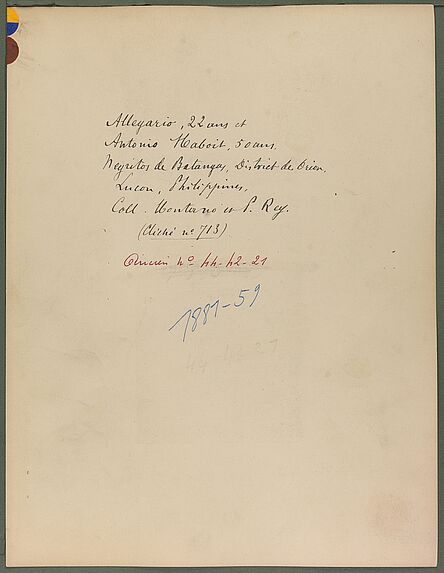 Allegario, 22 ans et
Antonio Maboit, 50 ans.
Negritos de Batangas, District de Orion,
Luçon, Philippines,
Coll. Montano et P. Rey.
(Cliché nº 713)
Ancien nº 44-42-21
1881-59
44-42-21